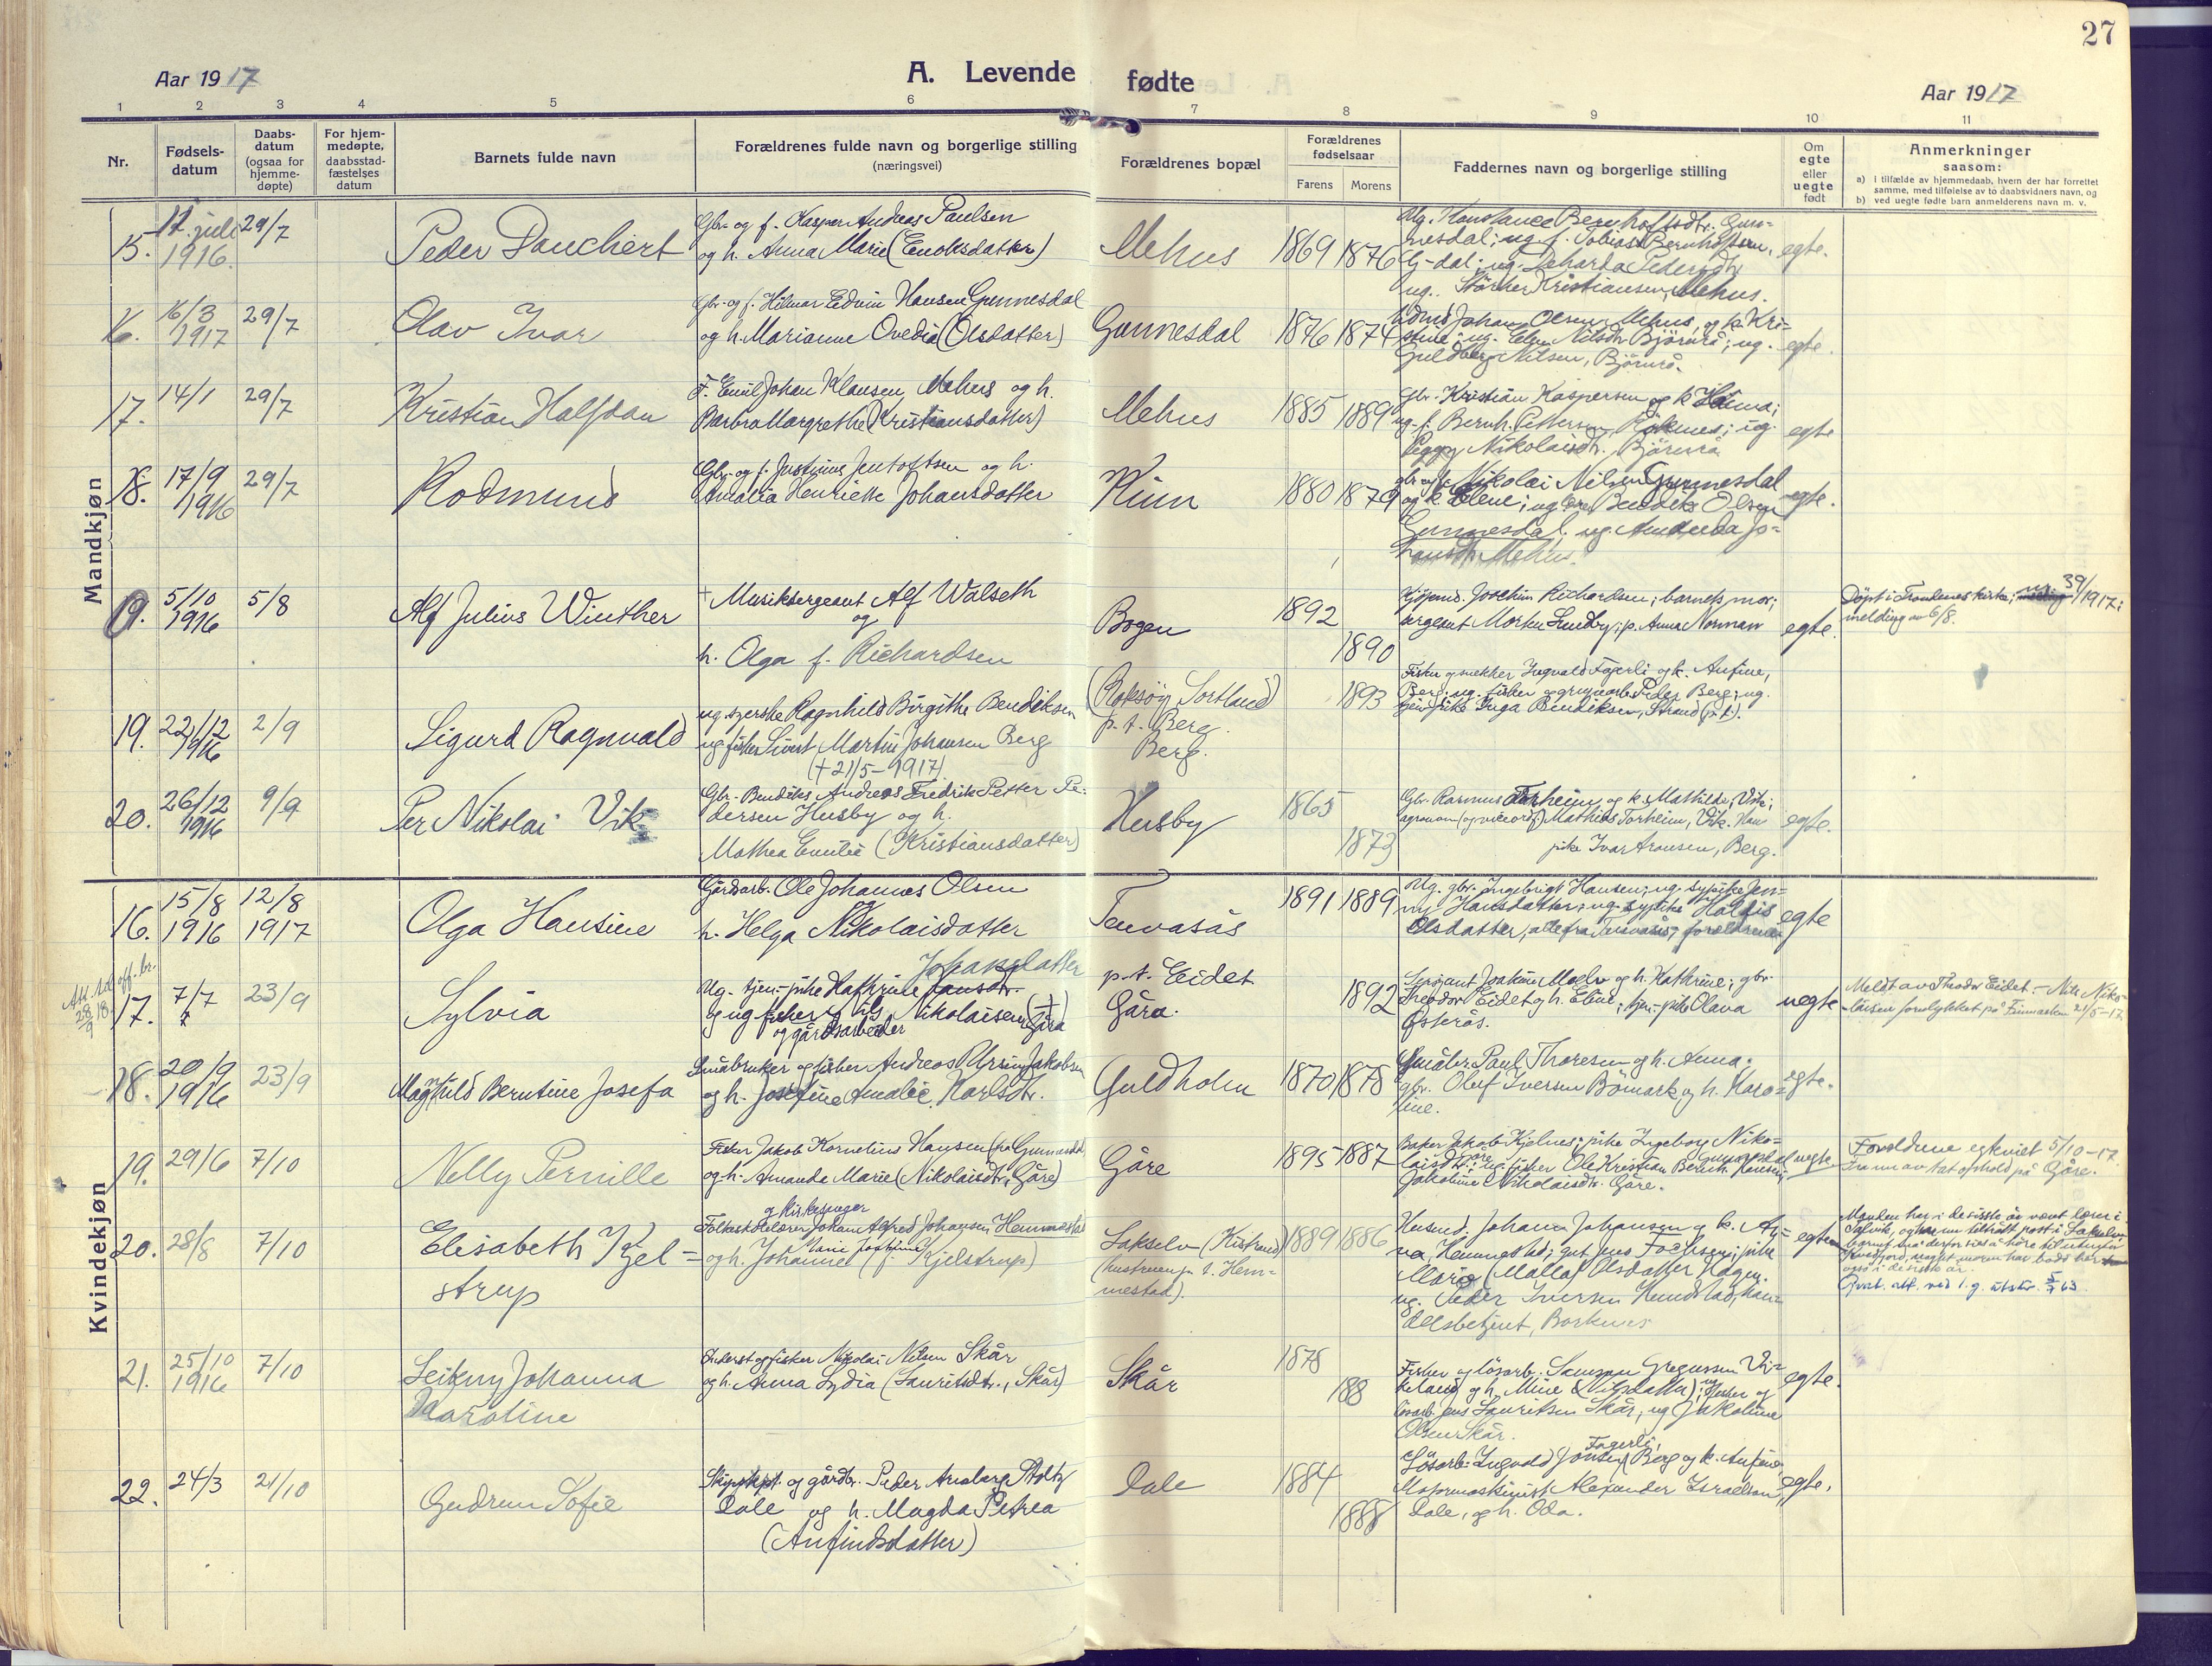 27
Aar 1917
A. Levende fødte
Aar 1917
1 2 3 4 5 6 7 8 9 10 11
Nr.
Fødsels-
datum
Daabs-
datum
(ogsaa for
hjemme-
døpte)
For hjem-
medøpte,
daabsstad-
fæstelses
datum
Barnets fulde navn
Forældrenes fulde navn og borgerlige stilling
(næringsvei)
Forældrenes bopæl
Forældrenes
fødselsaar
Farens Morens
Faddernes navn og borgerlige stilling
Om
egte
eller
uegte
født
Anmerkninger
saasom:
a) i tilfælde av hjemmedaab, hvem der har forrettet
samme, med tilføielse av to daabsvidners navn, og
b) ved uegte fødte barn anmelderens navn m. v.
Mandkjøn
15. juli 1916. 29/7
Peder Danchert
Gbr. og f. Kasper Andreas Paulsen
og h. Anna Marie (Enoksdatter)
Mehus 1869 1876
Ug. Konstance Bernhoftsdtr. Gun-
nesdal; ug. f. Tobias Bernhoftsen,
G-dal; ug. Peder
ug. Stärker Kristiansen, Mehus.
egte.
16. 16/3 1917 29/7
Olav Ivar
Gbr. og f. Hilmar Edvin Hansen Gunnesdal
og h. Marianne Ovedia (Olsdatter)
Gunnesdal 1876 1874
Johan Olsen Mehus, og k. Kri-
stine; ug. Elen Nilsdtr Björnrå; ug.
Guldberg Nilsen, Björnrå.
egte.
17. 14/1 29/7
Kristian Halfdan
F. Emil Johan Klausen, Mehus og h.
Barbra Margrethe (Kristiansdatter)
Mehus 1885 1889
Gbr. Kristian Kaspersen og k.
ug. f. Bernh. Pettersen, Röknes; ug.
Peggy Nikolaisdtr., Björnrå
egte
18. 17/9 1916 29/7
Rodmund
Gbr. og f. Justinus Jentoftsen og h.
Amalia Henriette Johansdatter
Kinn 1880 1879
Nikolai Nilsen Gunnesdal
og k. Elene; ug. Bendiks Olsen
Gunnesdal; ug. Amanda Jo-
hansdtr. Mehus.
egte.
19. 5/10 1916 5/8
Alf Julius Winther
+ Musiksergeant Alf Walseth
og
h. Olga f. Richardsen
Bogen 1892
1890
Kjøpmd. Joachim Richardsen; barnets mor;
sergeant Morten Lundby; p. Anna Norman
egte.
Döpt i Trondenes kirke; 39/1917;
melding av 6/8.
19. 22/12 1916 2/9
Sigurd Ragnvald
ug. syerske Ragnhild Birgithe Bendiksen
ug fisker Sivert Martin Johansen Berg
(+ 21/5 - 1917)
(Roksöy, Sortland)
p. t. Berg.
Berg.
1893
Fisker og snekker Ingvald Fagerli og k. Anfine,
Berg; ug. fisker og Peder Berg; ug.
pike Inga Bendiksen, Strand (p. t.).
20. 26/12 1916 9/9
Per Nikolai Vik
Gbr. Bendiks Andreas Fredrik Petter Pe-
dersen Husby og h.
Mathea Emilie (Kristiansdatter)
Husby 1865
1873
Gbr. Rasmus Torheim og k. Mathilde, Vik;
agronom (og viceordf.) Mathias Torheim, Vik.
pike Ivar Aronsen, Berg.
egte.
Kvindekjøn
16. 15/8 1916 12/8 1917
Olga Hansine
Gårdsarb. Ole Johannes Olsen
h. Helga Nikolaisdatter
Tenvasås 1891 1889
Ug. gbr. Ingebrigt Hansen; ug. sypike Jen-
ny Hansdatter; ug. sypike Haldis
Olsdatter, alle fra Tenvasås; forældrene
egte
Att. tel. off. br. 28/9 18.
17. 7/7 23/9
Sylvia
Johansdatter
Ug. tjen.-pike Kathrine
og ug fisker Nils Nikolaisen (+)
og gårdsarbeider Gåra
p. t. Eidet
Gåra.
1892
Sersjant Joakim Moelv og h. Kathrine; gbr.
Theodor Eidet og h. Eline; tjen.-pike Olava
Österås.
uegte
Meldt av Theodor Eidet. - Nils Niko-
laisen forulykket på Finmarken 21/5-17
18. 20/9 1916 23/9
Magnhild Berntine Josefa
Småbruker og fisker Andreas Ursin Jakobsen
og h. Josefine Amalie Karlsdtr.
Guldholm 1870 1878
Småbr. Paul Thoresen og h. Anna;
gbr. Oluf Iversen Bömark og h. Karo-
line.
egte.
19. 29/6 7/10
Nelly Pernille
Fisker Jakob Kornelius Hansen (fra Gunnesdal)
og h. Amanda Marie (Nikolaisdtr., Gåre)
Gåre 1895 1887
Baker Jakob Kjölnes; pike Ingeborg Niko-
laisdtr., Gåre; ug. fisker Ole Kristian Bernh. Hansen, Gunnesdal
Jakobine Nikolaisdtr. Gåre.
uegte
Forældrene egteviet 5/10-17.
opphold på Gåre.
20. 28/8 7/10
Elisabeth Kjel-
strup
og kirkesanger
Folkeskolelærer Johan Alfred Johansen Hemmestad
og h. Johanne Marie (f. Kjelstrup)
Lakselv (Kistrand)
(hustruen p. t. Hem-
mestad).
1889 1886
Husmd. Johan Johansen og k. An-
na, Hemmestad; gut Jens Fochsen; pike
Maria (Malla) Olsdatter Hagen.
ug. Peder Iversen Hundstad, han-
delsbetjent, Borknes
egte
Manden har i de siste år været lærer i
Talvik, og har nu tiltrådt post i Lakselv;
barnet må derfor sies å høre til utenfor
Kvedfjord, uagtet moren har bodd her
også i de siste år.
21. 25/10 1916 7/10
Leikny Johanna
Karoline
Inderst og fisker Nikolai Nilsen Skår
og h. Anna Lydia (Lauritsdtr., Skår)
Skår 1878
188
Fisker og lösarb. Samson Gregussen Vi-
keland og h. Mine (Nilsdatter); ug. fisker og
lösarb. Jens Lauritsen Skår; ug Jakobine
Olsen Skår.
egte.
22. 24/3 21/10
Gudrun Sofie
Skipskpt. og gårdbr. Peder Amberg Stoltz
Dale og h. Magda Petrea
(Anfindsdatter)
Dale 1884
1888
Fagerli,
Lösarb. Ingvald Jonsen, Berg og k. Anfine,
Motormaskinist Alexander Israelsen,
Dale, og h. Oda.
egte.